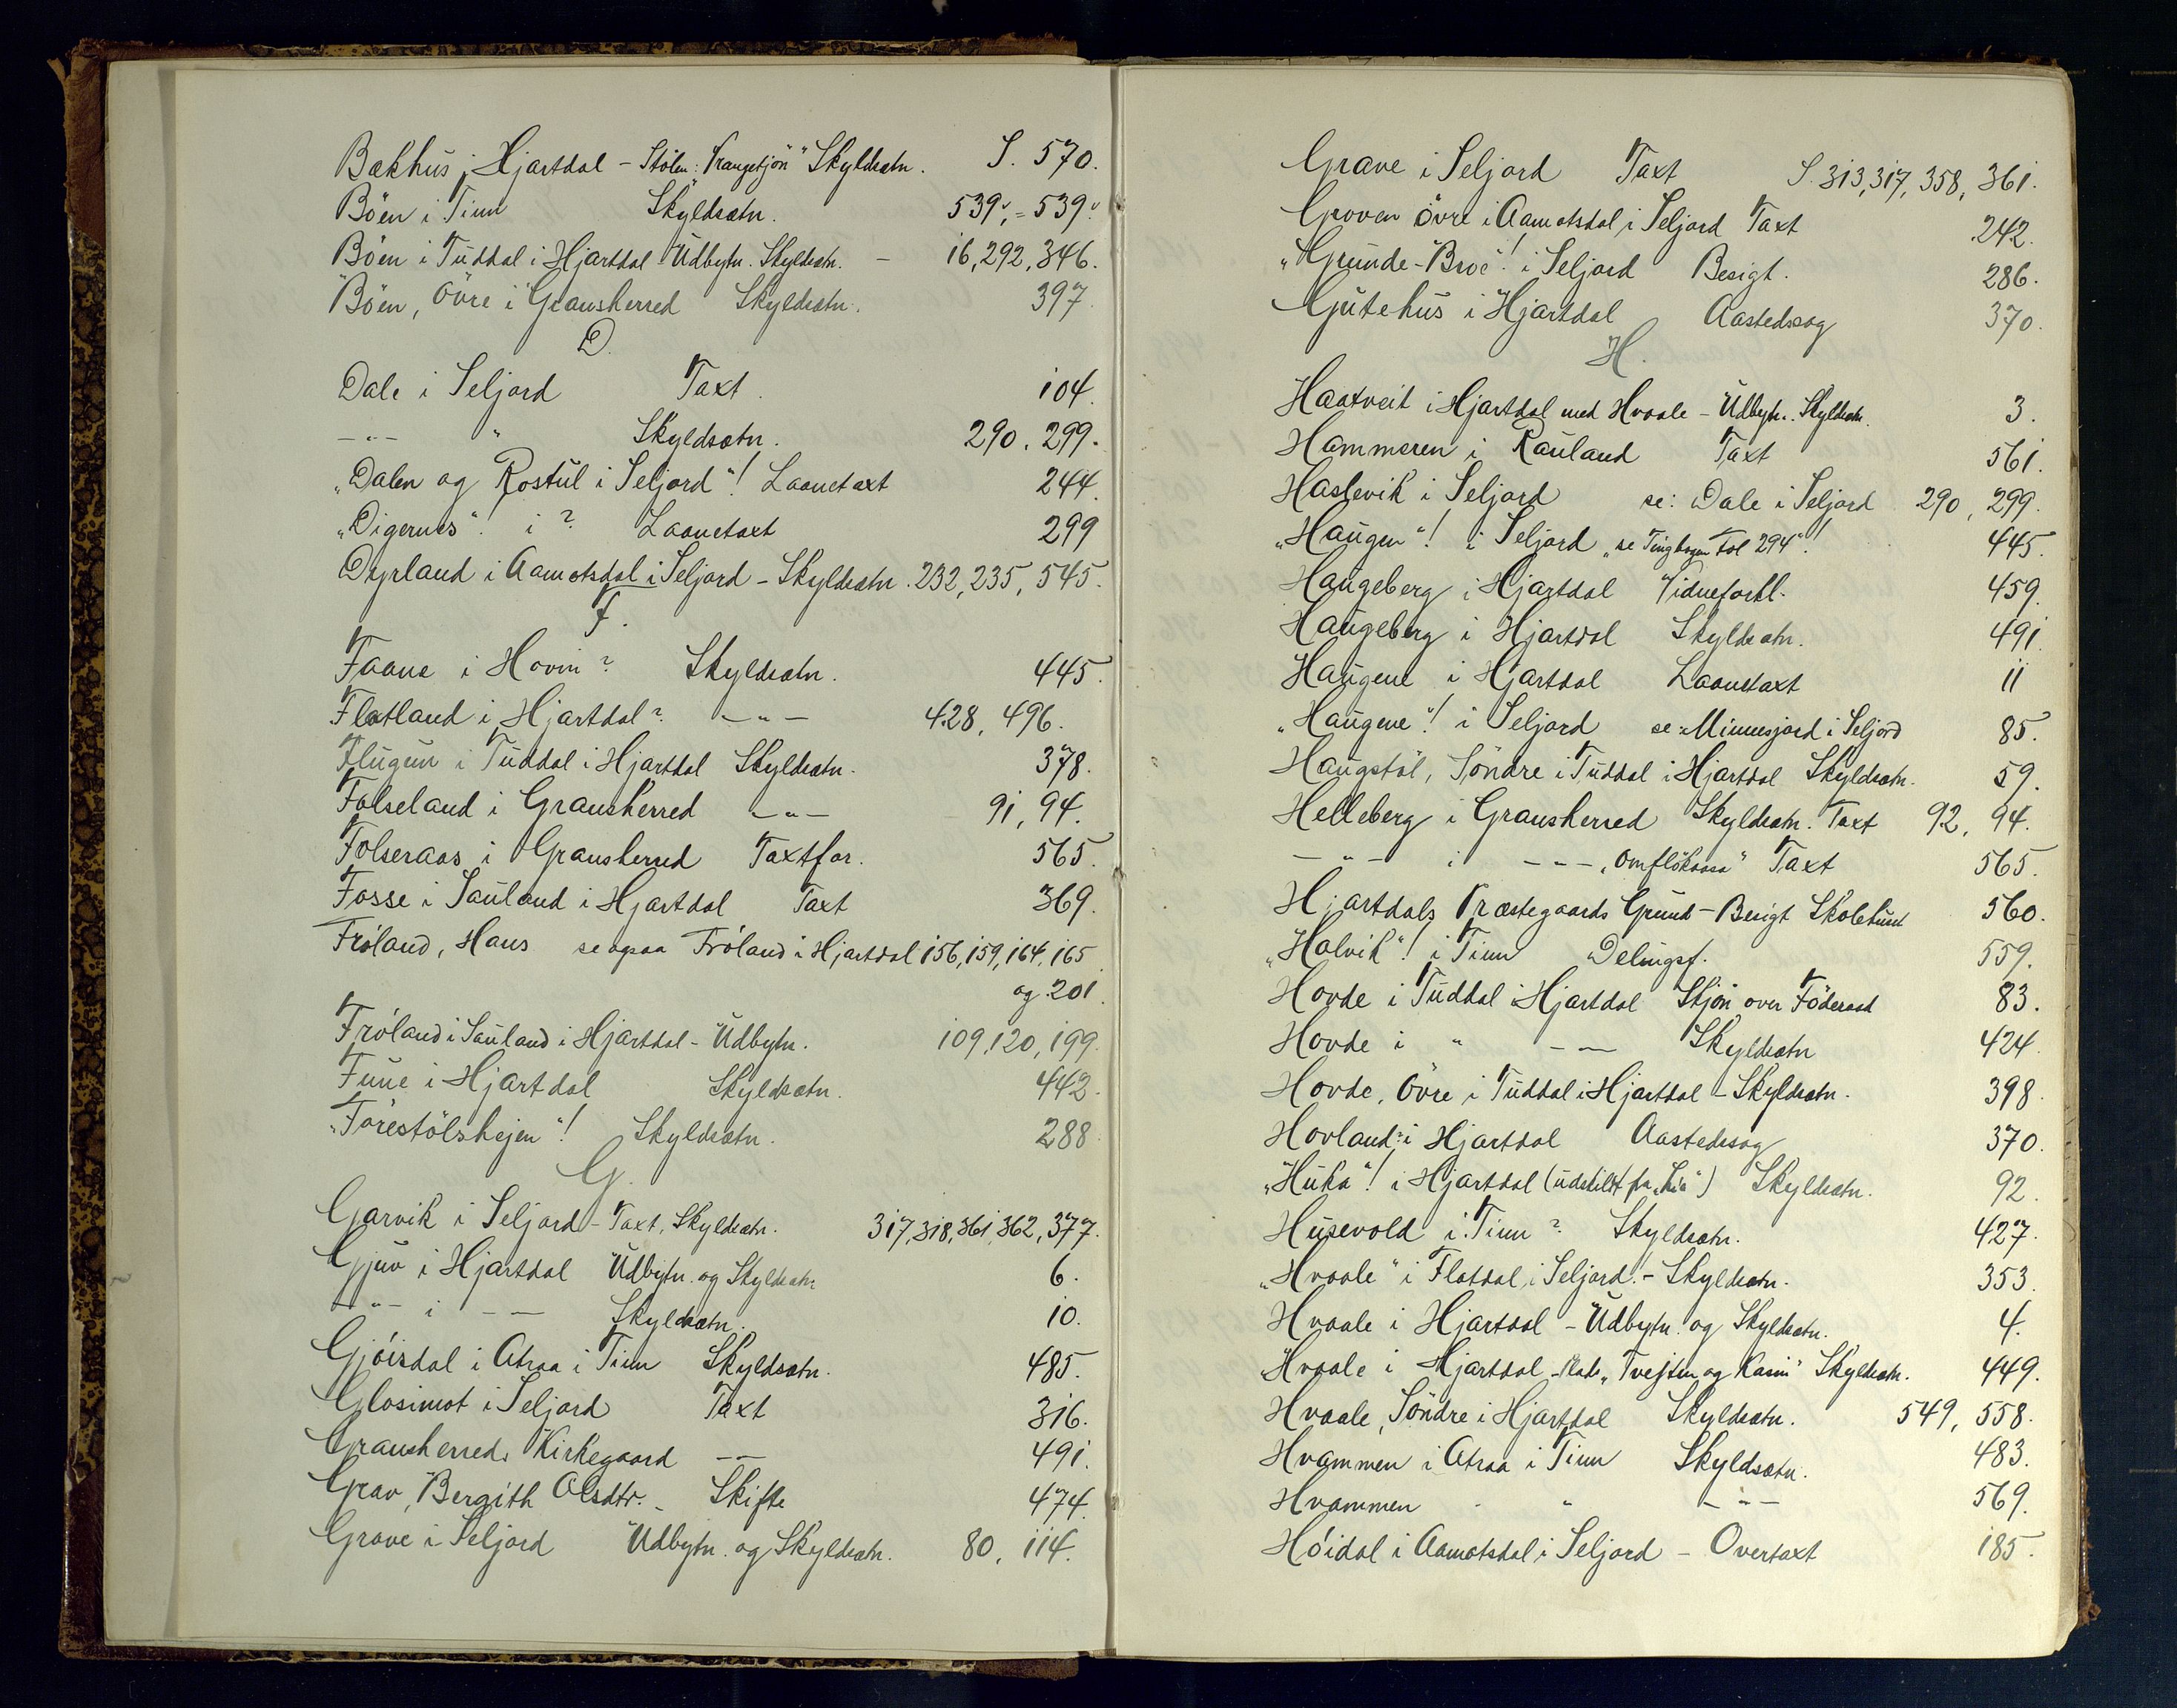 Bækhus i Hjartdal - Stölen: "Vrangetjön" Skyldsætn. S. 570.
Böen i Tinn Skyldsætn. 539v, = 539v.
Böen i Tuddal i Hjartdal - Udbytn. Skyldsætn. - 16, 292, 346.
Böen, Övre i Gransherred Skyldsætn. 397.
D.
Dale i Seljord Taxt. 104.
-"- " Skyldsætn. 290, 299.
"Dalen og Rostul i Seljord"! Laanetaxt 244.
"Digernes"! i ? Laanetaxt 299
Dyrland i Aamotsdal i Seljord - Skyldsætn. 232, 235, 545.
F.
Faane i Hovin? Skyldsætn. 445.
Flatland i Hjartdal? -"- 428, 496.
Flugun i Tuddal i Hjartdal Skyldsætn. 378.
Folseland i Gransherred -"- 91, 94.
Folseraas i Gransherred Taxtfor. 565.
Fosse i Sauland i Hjartdal Taxt 369.
Fróland, Hans se ogsaa Fróland i Hjartdal 156, 159, 164, 165
og 201.
Fróland i Sauland i Hjartdal - Udbytn. 109, 120, 199.
Fune i Hjartdal Skyldsætn. 442.
"Förestölshejen"! Skyldsætn. 288.
G.
Garvik i Seljord - Taxt, Skyldsætn. 317, 318, 361, 362, 377.
Gjuv i Hjartdal Udbytn. og Skyldsætn 6.
-"- i -- Skyldsætn. 10.
Gjóisdal i Atraa i Tinn Skyldsætn. 485.
Glosimot i Seljord Taxt 316.
Gransherreds Kirkegaard -- 491.
Grav, Bergith Olsdtr. - Skifte 474.
Grave i Seljord Udbytn. og Skyldsætn. 80, 114.
Grave i Seljord Taxt S. 313, 317, 358, 361.
Groven övre i Aamotsdal i Seljord Taxt 242.
"Grunde-Broe"! i Seljord Besigt. 286.
Gutehus i Hjartdal Aastedssag 370.
H.
Haatveit i Hjartdal med Hvaale - Udbytn. Skyldsætn. 3.
Hammeren i Rauland Taxt 561.
Haslevik i Seljord se: Dale i Seljord 290, 299.
"Haugen"! i Seljord "se Tingbogen Fol 294"! 445.
Haugeberg i Hjartdal Vidneforkl. 459.
Haugeberg i Hjartdal Skyldsætn. 491.
Haugene i Hjartdal Laanetaxt 11
"Haugene"! i Seljord se: Minnesjord i Seljord 85.
Haugstöl, Söndre i Tuddal i Hjartdal Skyldsætn. 59.
Helleberg i Gransherred Skyldsætn. Taxt 92, 94.
-"- i -"- "Omflökaasa" Taxt 565.
Hjartdals Præstegaards Grund - Besigt Skolehuus 560.
"Holvik"! i Tinn Delingsf. 559.
Hovde i Tuddal i Hjartdal Skjön over Föderaad 83.
Hovde i " -- Skyldsætn 424.
Hovde, Övre i Tuddal i Hjartdal - Skyldsætn. 398.
Hovland i Hjartdal Aastedssag 370.
"Huka"! i Hjartdal (udskildt fra "Lia") Skyldsætn. 92.
Husevold i Tinn? Skyldsætn. 427.
"Hvaale" i Flatdal i Seljord! - Skyldsætn. 353.
Hvaale i Hjartdal - Udbytn. og Skyldsætn. 4.
Hvaale i Hjartdal - Plads "Tvejten og Kasin" Skyldsætn. 449.
Hvaale, Söndre i Hjartdal Skyldsætn. 549, 558.
Hvammen i Atraa i Tinn Skyldsætn. 483.
Hvammen " -"- 569.
Hóidal i Aamotsdal i Seljord - Overtaxt 185.